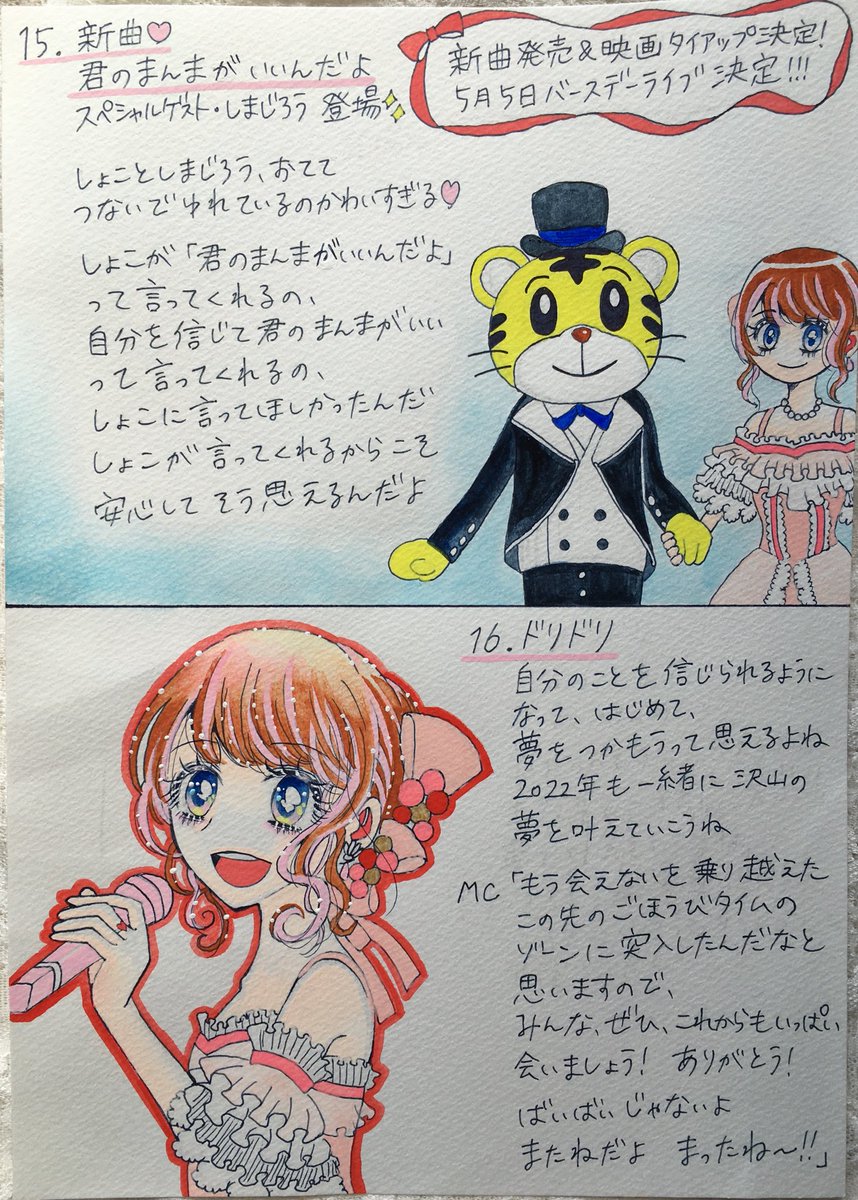 15. 新曲♡
君のまんまがいいんだよ
スペシャルゲスト・しまじろう 登場
新曲発売&映画タイアップ決定!
5月5日バースデーライブ決定!!!
しょことしまじろう、おてて
つないでゆれているのかわいすぎる♡
しょこが「君のまんまがいいんだよ」
って言ってくれるの、
自分を信じて君のまんまがいい
って言ってくれるの、
しょこに言ってほしかったんだ
しょこが言ってくれるからこそ
安心してそう思えるんだよ
16. ドリドリ
自分のことを信じられるように
なって、はじめて、
夢をつかもうって思えるよね
2022年も一緒に沢山の
夢を叶えていこうね
MC「もう会えないを乗り越えた
この先のごほうびタイムの
ゾーンに突入したんだなと
思いますので、
みんな、ぜひ、これからもいっぱい
会いましょう! ありがとう!
ばいばいじゃないよ
またねだよ まったね〜!!」